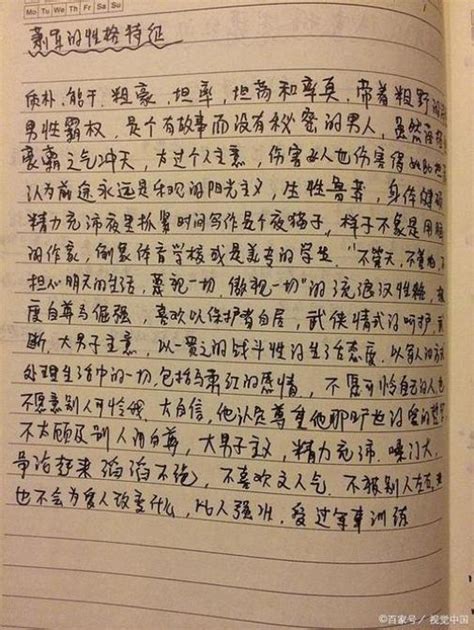 Mo Tu We Th Fr Sa Su
萧军的性格特征
质朴、能干、粗豪、坦率、坦荡和率真、带着粗野的
男性霸权、是个有故事而没有秘密的男人，虽然
豪霸之气冲天，大过个人主意，伤害女人也伤害得
认为前途永远是乐观的阳光主义，生性鲁莽，身体
精力充沛夜里抓紧时间写作是个夜猫子，样子不象是用脑
的作家，倒象体育学校或是美专的学生。"不管天，不管地，不
担心明天的生活，蔑视一切，傲视一切"的流浪汉性格，
度自尊与倔强，喜欢以保护者自居，武侠情式的呵护，
断，大男子主意，以一贯之的战斗性的生活态度，以
处理生活中的一切包括与萧红的感情，不愿可怜自己的人也
不愿意别人可怜他，太自信，他认定尊重他那
不太顾及别人的自尊，大男子主义，精力充沛，嗓门大，
争论起来滔滔不绝，不喜欢文人气，不被别人左右，
也不会为爱人改变什么，比人强准，受过军事训练
©百家号／视觉中国